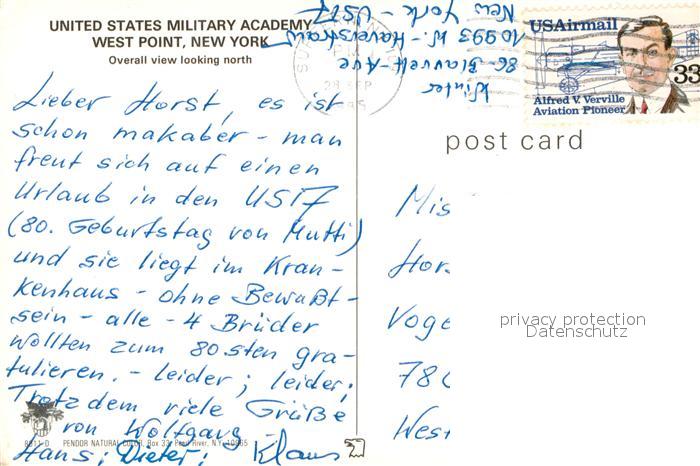 UNITED STATES MILITARY ACADEMY
WEST POINT, NEW YORK
Overall view looking north
Winter
86-Blauvelt-Ave
10993 W.-Haverstraw
New York - USA
USAirmail
33
Alfred V. Verville
Aviation Pioneer
post card
Lieber Horst, es ist
schon makaber - man
freut sich auf einen
Urlaub in den USA
(80. Geburtstag von Mutti)
und sie liegt im Kran-
kenhaus - ohne Bewußt-
sein - alle - 4 Brüder
wollten zum 80.sten gra-
tulieren. - leider; leider;
Trotzdem viele Grüße
von Wolfgang
Hans; Dieter; Klaus
PENDOR NATURAL COLOR, Box 33, Pearl River, N.Y. 10965
Mis
Hor
Voge
780
West
privacy protection
Datenschutz